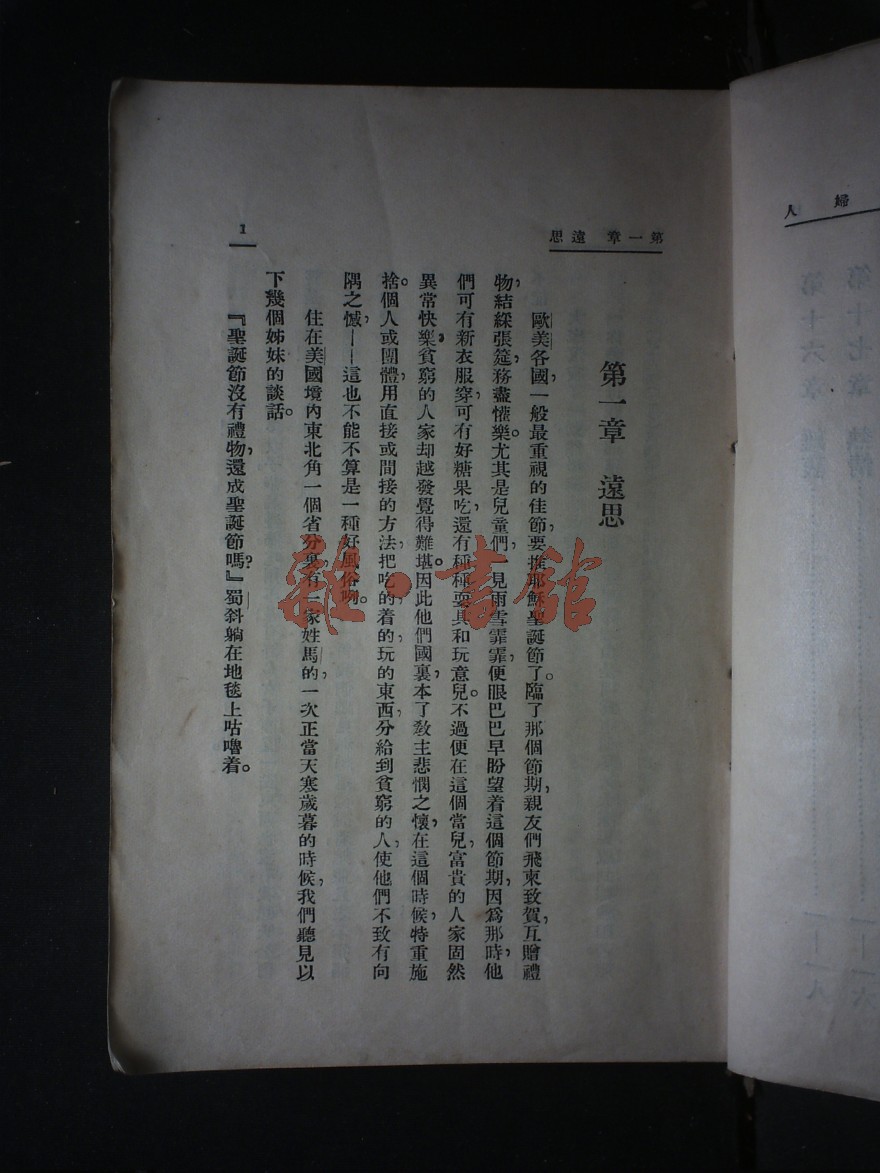 婦人
第十七章
第十六章
第一章 遠思
第一章 遠思
歐美各國一般最重視的佳節，要推耶穌聖誕節了。臨了那個節期，親友們飛柬致賀，互贈禮
物，結綵張筵，務盡懽樂。尤其是兒童們，一見雨雪霏霏，便眼巴巴早盼望着這個節期，因爲那時，他
們可有新衣服穿，可有好糖果吃，還有種種耍具和玩意兒。不過便在這個當兒，富貴的人家固然
異常快樂，貧窮的人家却越發覺得難堪。因此他們國裏，本了敎主悲憫之懷，在這個時候，特重施
捨。個人或團體，用直接或間接的方法，把吃的着的玩的東西，分給到貧窮的人，使他們不致有向
隅之憾，——這也不能不算是一種好風俗咧。
住在美國境內東北角一個省分裏，有一家姓馬的，一次正當天寒歲暮的時候，我們聽見以
下幾個姊妹的談話。
『聖誕節沒有禮物，還成聖誕節嗎？』蜀斜躺在地毯上咕嚕着。
1
雜·書館